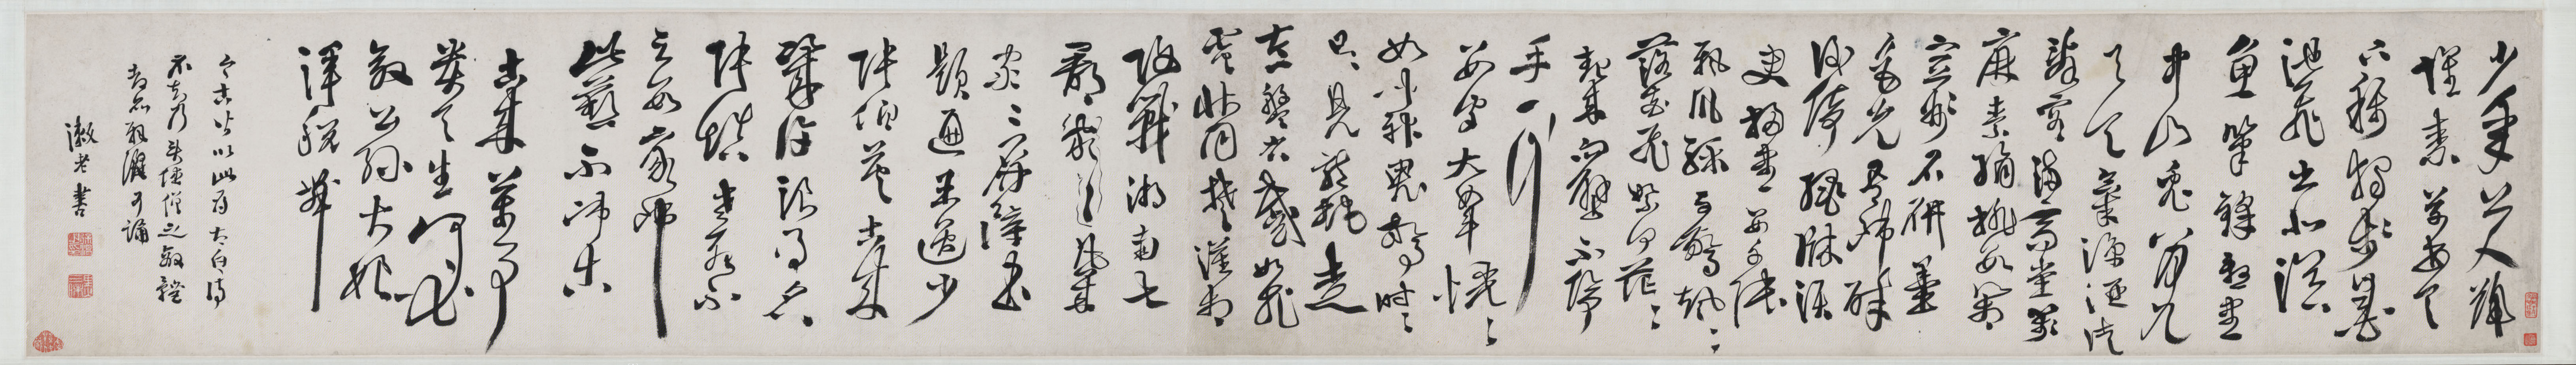 少年上人號
懷素草書天
下稱獨步墨
池飛出北溟
魚筆鋒殺盡
中山兔八月九
月天氣涼酒徒
詞客滿高堂箋
麻素絹排數箱
宣州石硯墨
色光吾師醉
後倚繩床須
臾掃盡數千張
飄風驟雨驚颯々
落花飛雪何茫々
起來向壁不停
手一行
數字大如斗怳々
如聞神鬼驚時々
只見龍蛇走
左盤右蹙如飛
電狀同楚漢相
攻戰湖南七
郡凡幾家
家々屏障書
題遍王逸少
張伯英古來
幾許浪得名
張顛老死不
足數我師
此藝不師古
古來萬事
貴天生何必
要公孫大娘
渾脫舞
今古皆以此為太白詩
不知乃
可誦
漱老書